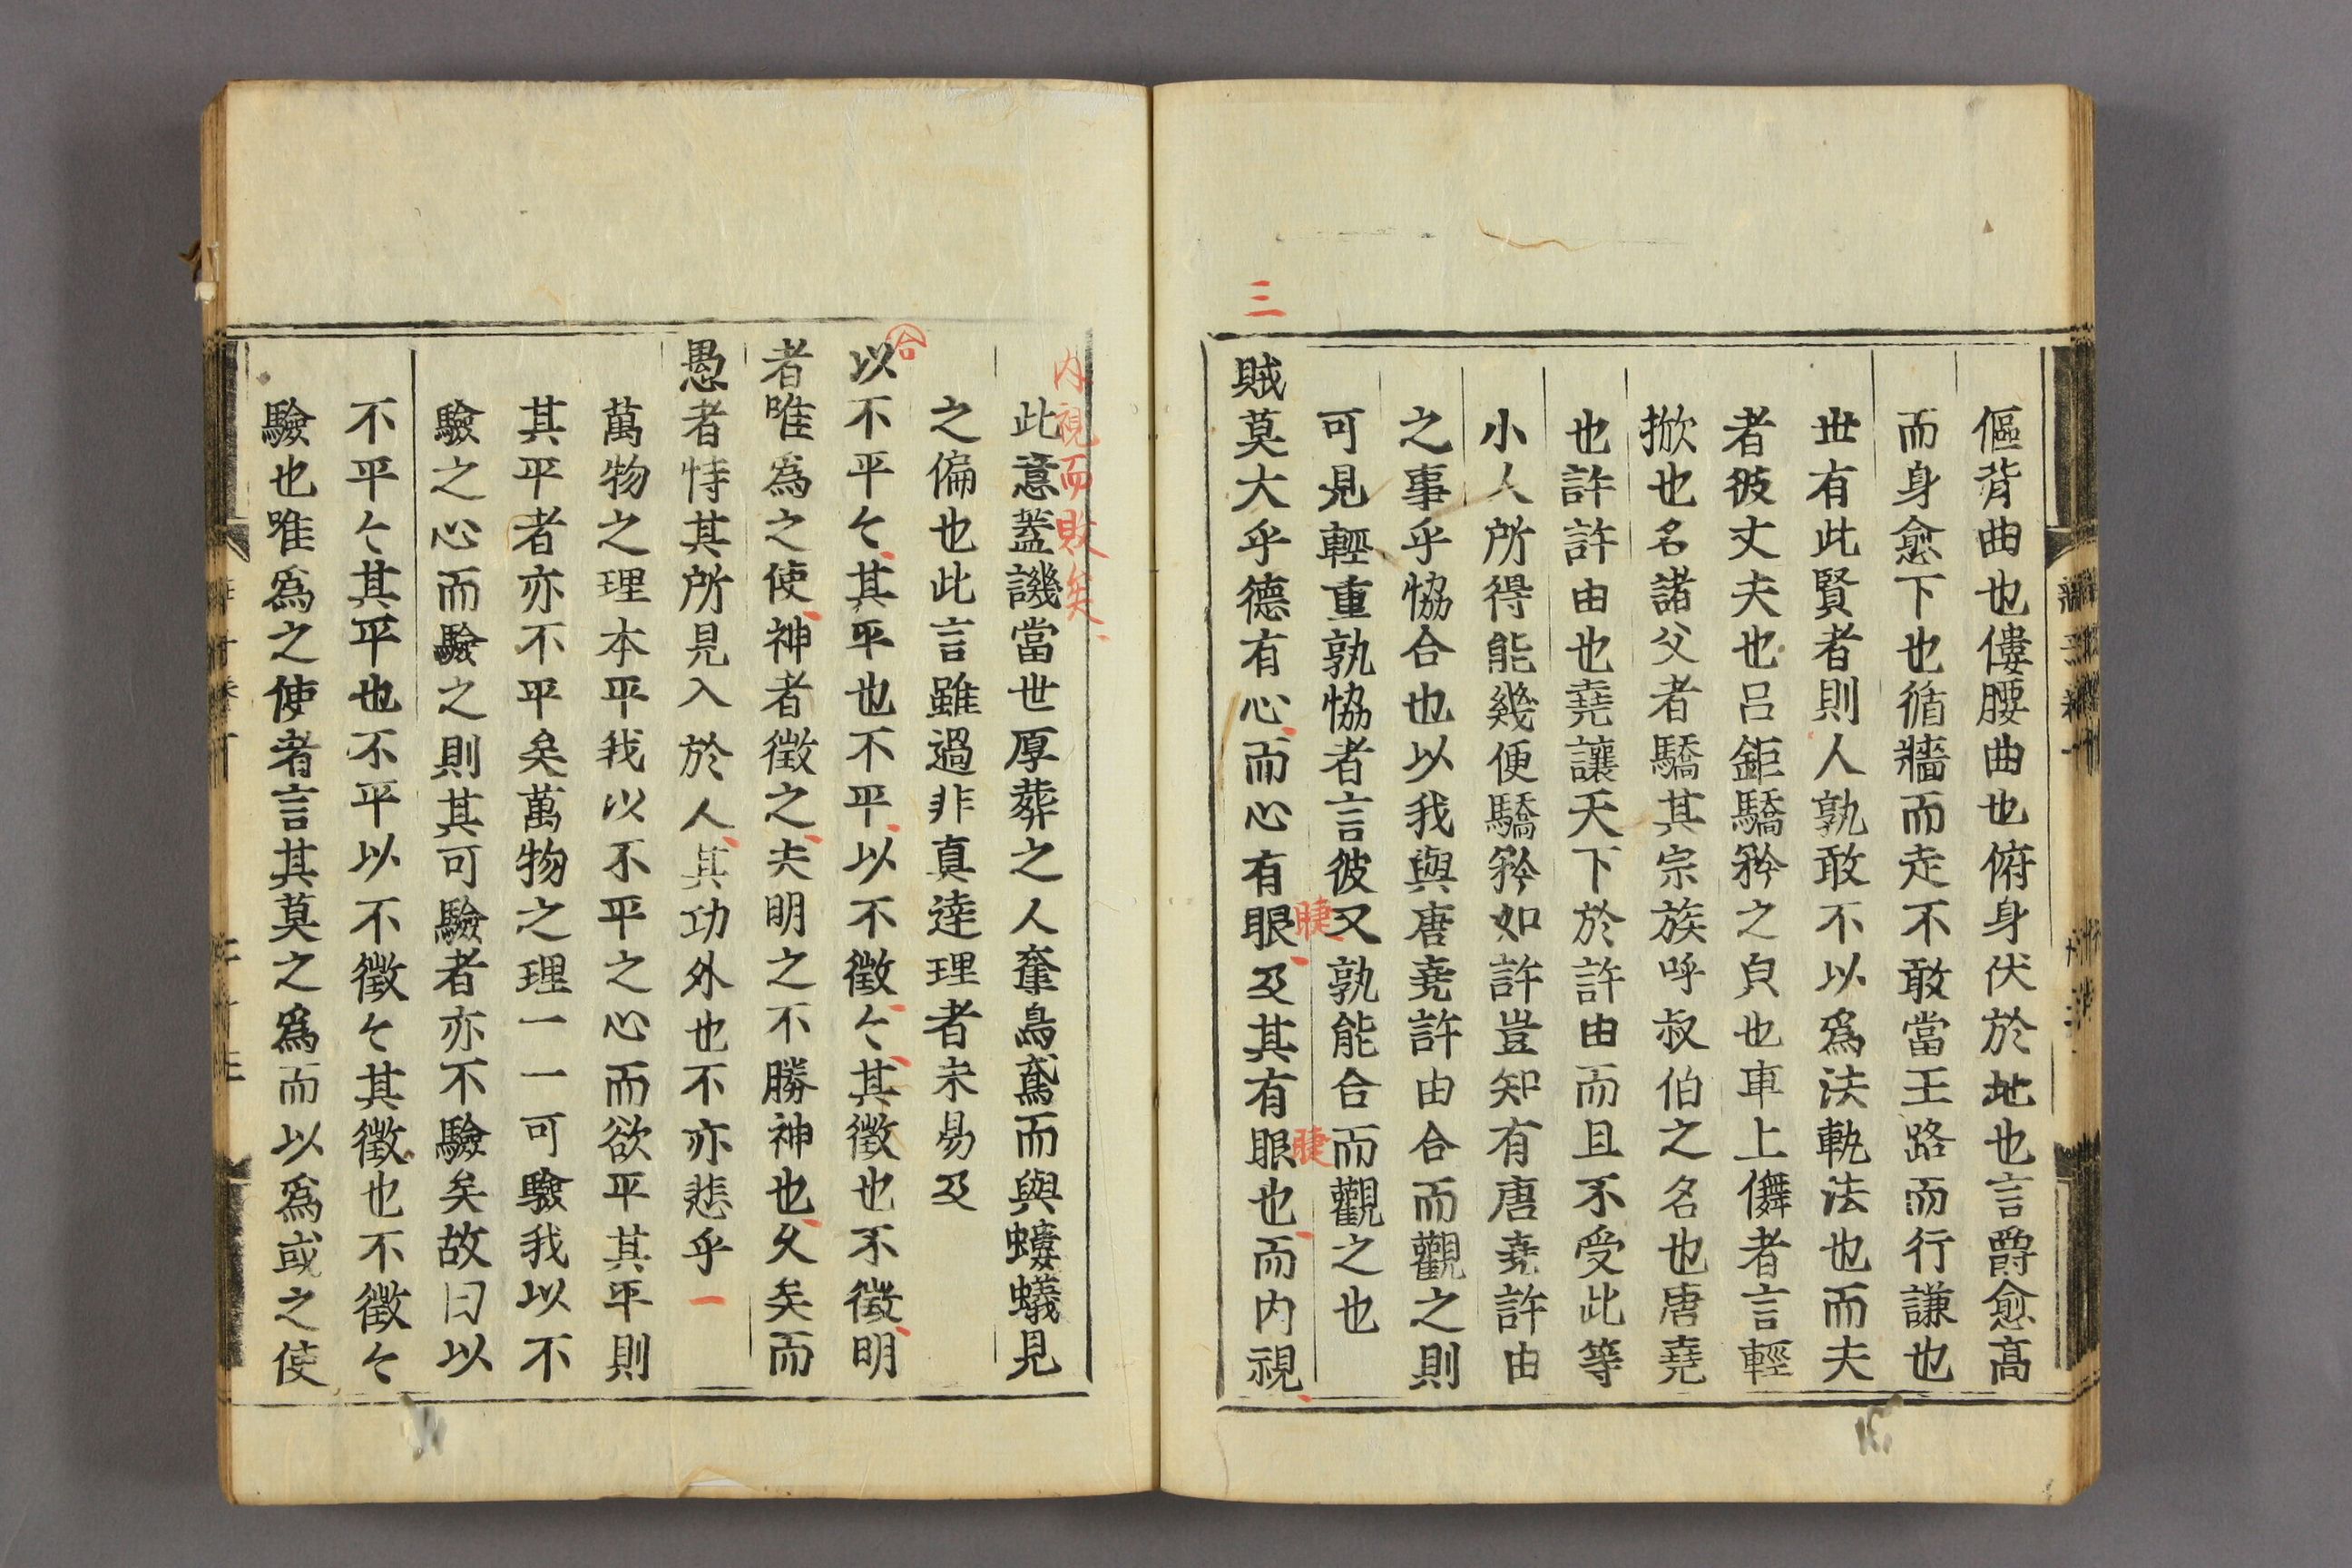 傴背曲也僂腰曲也俯身伏於地也言爵愈髙
而身愈下也循牆而走不敢當王路而行謙也
世有此賢者則人孰敢不以爲法軌法也而夫
者彼丈夫也吕鉅驕矜之皃也車上儛者言輕
掀也名諸父者驕其宗族呼叔伯之名也唐堯
也許許由也堯讓天下於許由而且不受此等
小人所得能幾便驕矜如許豈知有唐堯許由
之事乎恊合也以我與唐堯許由合而觀之則
可見輕重孰恊者言彼又孰能合而觀之也
三
賊莫大乎德有心而心有眼及其有眼也而内視
睫
睫
内視而敗矣
此意蓋譏當世厚葬之人奪鳥鳶而與螻蟻見
之偏也此言雖過非真達理者未易及
合
以不平々其平也不平以不徵々其徵也不徵明
者唯爲之使神者徵之夫明之不勝神也久矣而
愚者恃其所見入於人其功外也不亦悲乎一
萬物之理本平我以不平之心而欲平其平則
其平者亦不平矣萬物之理一一可驗我以不
驗之心而驗之則其可驗者亦不驗矣故曰以
不平々其平也不平以不徵々其徵也不徵々
驗也唯爲之使者言其莫之爲而以爲或之使